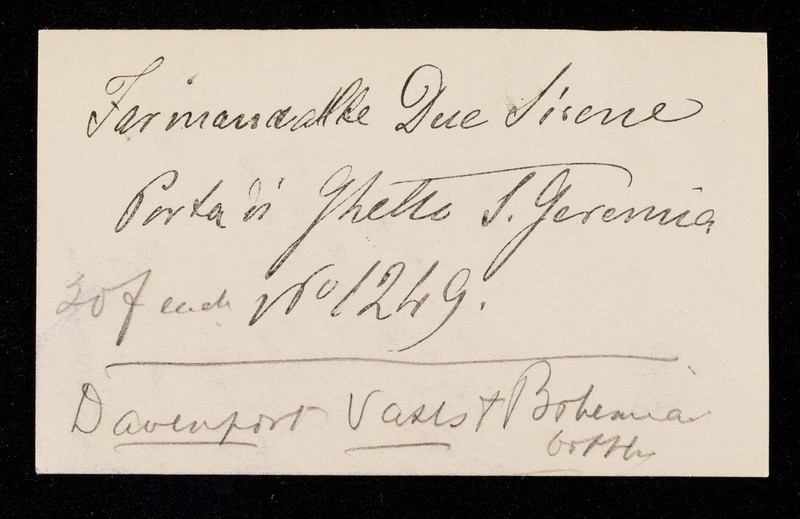 Farmacia alle Due Sirene
Porta di Ghetto S. Geremia
30 f each No 1249.
Davenport Vases + Bohemia
bottles